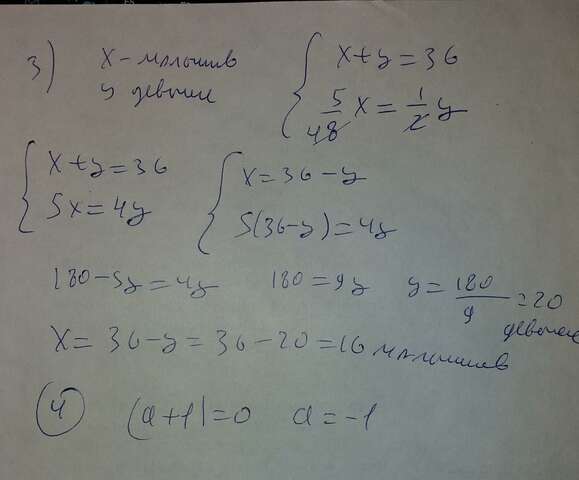 3) x - мальчиков { x + y = 36
y девочек { 5/8 x = 1/2 y
{ x + y = 36 { x = 36 - y
{ 5x = 4y { 5(36-y) = 4y
180 - 5y = 4y 180 = 9y y = 180/9 = 20 девочек
x = 36 - y = 36 - 20 = 16 мальчиков
4) |a+1| = 0 a = -1